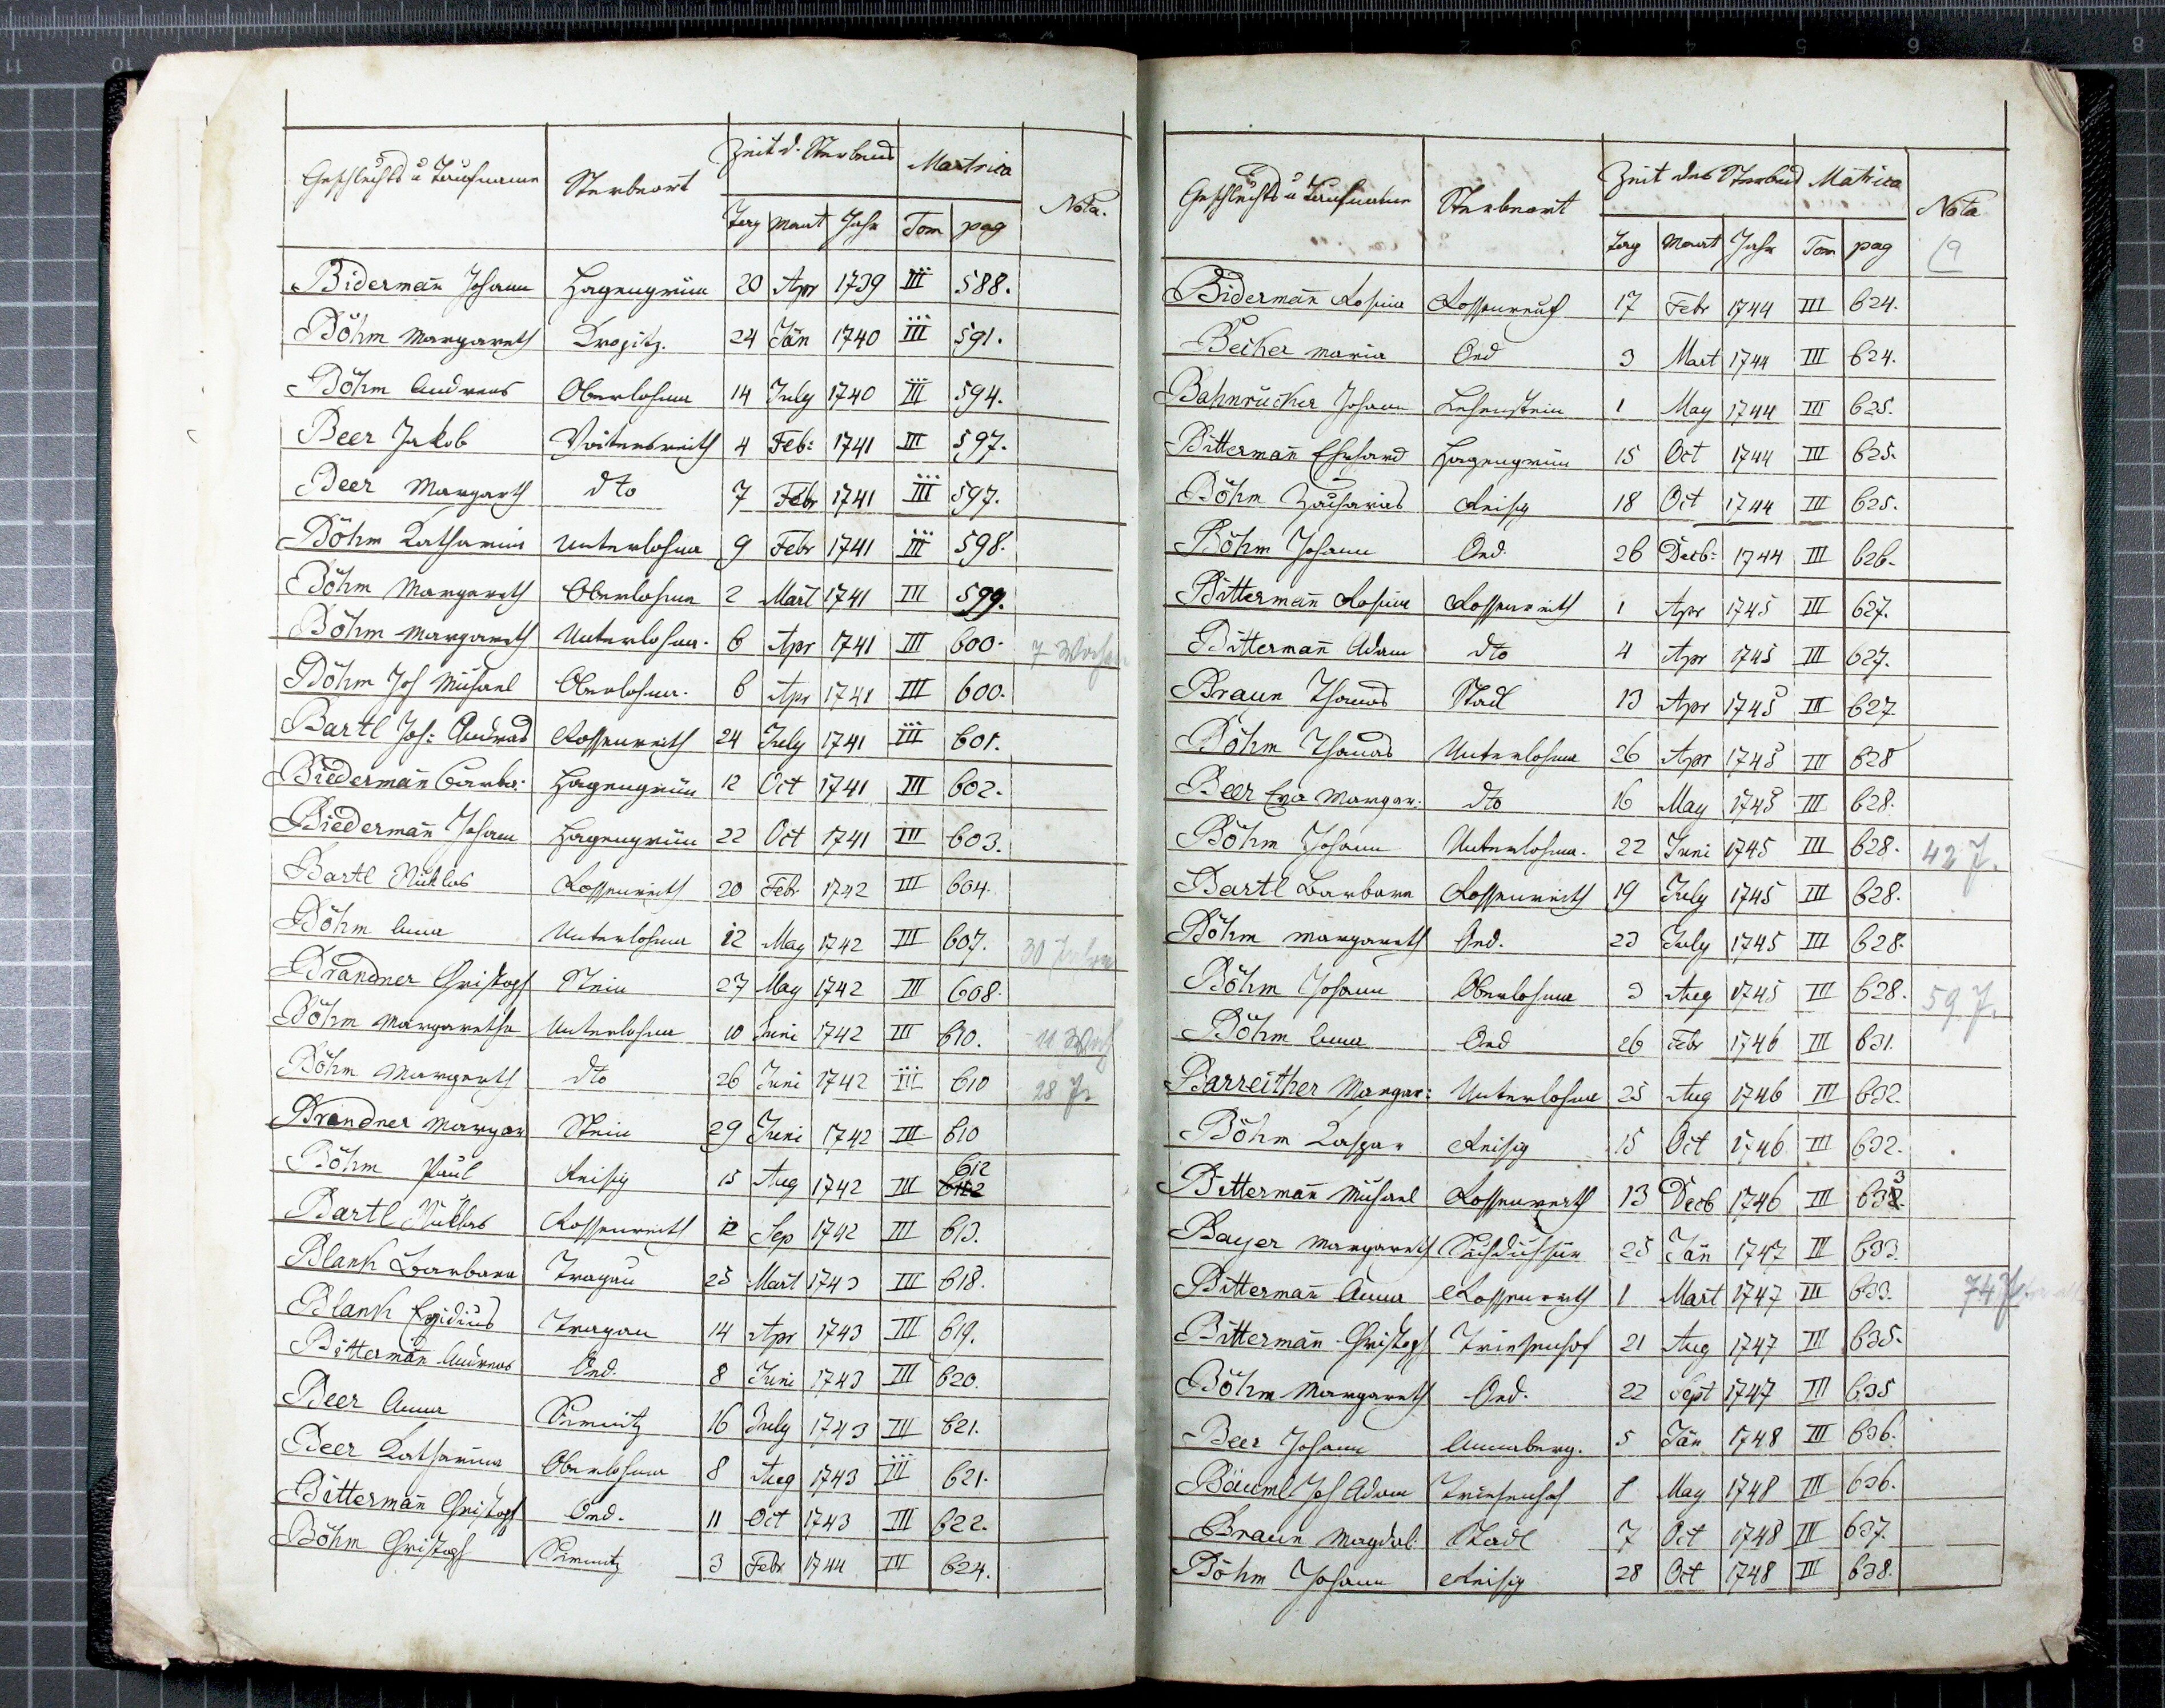 Geschlechts u Taufname Sterbeort Zeit d. Sterbens Matrica Nota.
Tag Monat Jahr Tom pag
Bidermañ Johann Hagengrün 20 Apr 1739 III 588.
Böhm Margareth 24 Jän 1740 III 591.
Böhm Andreas Oberlohma 14 July 1740 III 594.
Beer Jakob Voitersreith 4 Feb: 1741 III 597.
Beer Margarth dto 7 Febr 1741 III 597.
Böhm Katharina Unterlohma 9 Febr 1741 III 598.
Böhm Margareth Oberlohma 2 Mart 1741 III 599.
Böhm Margareth Unterlohma. 6 Apr 1741 III 600. 7 Wochen
Böhm Joh Michael Oberlohma. 6 Apr 1741 III 600.
Bartl Joh: Andreas Rossenreith 24 July 1741 III 601.
Biedermañ Barba: Hagengrün 12 Oct 1741 III 602.
Biedermañ Johann Hagengrün 22 Oct 1741 III 603.
Bartl Niklas Rossenreith 20 Febr 1742 III 604.
Böhm Anna Unterlohma 12 May 1742 III 607. 30 Jahre
Brandner Christoph Stein 27 May 1742 III 608.
Böhm Margaretha Unterlohma 10 Juni 1742 III 610. 11 Woch
Böhm Margareth dto 26 Juni 1742 III 610 28 J.
Brandner Margar Stein 29 Juni 1742 III 610
Böhm Paul Reisig 15 Aug 1742 III 612
Bartl Niklas Rossenreith 12 Sep 1742 III 613.
Blank Barbara Tragau 25 Mart 1743 III 618.
Blank Egidius Tragau 14 Apr 1743 III 619.
Bittermañ Andreas Ond. 8 Juni 1743 III 620.
Beer Anna Sirmitz 16 July 1743 III 621.
Beer Katharina Oberlohma 8 Aug 1743 III 621.
Bittermañ Christoph Ond. 11 Oct 1743 III 622.
Böhm Christoph Sirmitz 3 Febr 1744 III 624.
Geschlechts u Taufname Sterbeort Zeit des Sterbens Matrica Nota
Tag Monat Jahr Tom pag
Bidermañ Rosina Rossenreith 17 Febr 1744 III 624.
Becher Maria Ond 3 Mart 1744 III 624.
Bahnrucker Johann Lehenstein 1 May 1744 III 625.
Bittermañ Erhard Hagengrün 15 Oct 1744 III 625.
Böhm Zacharias Reisig 18 Oct 1744 III 625.
Böhm Johann Ond. 26 Decb: 1744 III 626.
Bittermañ Rosina Rossenreith 1 Apr 1745 III 627.
Bittermañ Adam dto 4 Apr 1745 III 627.
Braun Thomas Stadl 13 Apr 1745 III 627
Böhm Thomas Unterlohma 26 Apr 1745 III 628
Beer Eva Margar: dto 16 May 1745 III 628.
Böhm Johann Unterlohma. 22 Juni 1745 III 628. 42 J.
Bartl Barbara Rossenreith 19 July 1745 III 628.
Böhm Margareth Ond. 23 July 1745 III 628.
Böhm Johann Oberlohma 3 Aug 1745 III 628. 59 J.
Böhm Anna Ond 26 Febr 1746 III 631.
Barreither Margar: Unterlohma 25 Aug 1746 III 632
Böhm Kaspar Reisig 15 Oct 1746 III 632.
Bittermañ Michael Rossenreith 13 Decb 1746 III 633
Bayer Margareth 25 Jän 1747 III 633.
Bittermañ Anna Rossenreith 1 Mart 1747 III 633. 74 J
Bittermañ Christoph Trieshof 21 Aug 1747 III 635.
Böhm Margareth Ond. 22 Sept 1747 III 635
Beer Johann Annaberg. 5 Jän 1748 III 636.
Bäuml Joh Adam 8 May 1748 III 636.
Braun Magdal: Stadl 7 Oct 1748 III 637.
Böhm Johann Reisig 28 Oct 1748 III 638.